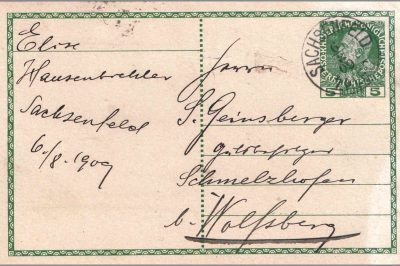 Elise
Hausenbichler
Sachsenfeld
6./8. 1909
Herrn
S. Geinsberger
Gutsbesitzer
Schmelzhofen
b. Wolfsberg
SACHSENFELD
5 5